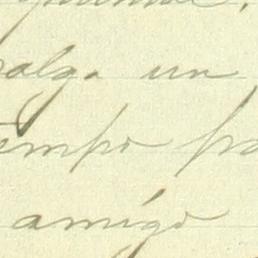 valga un
empo pa
amigo